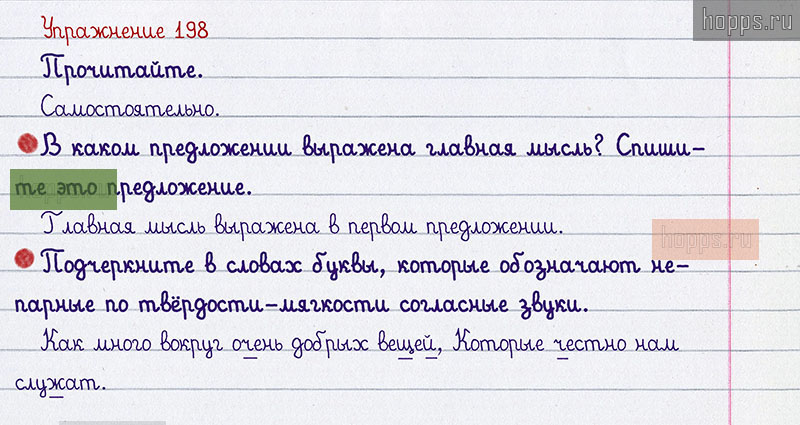 Упражнение 198
hopps.ru
Прочитайте.
Самостоятельно.
В каком предложении выражена главная мысль? Спиши-
те это предложение.
Главная мысль выражена в первом предложении.
hopps.ru
Подчеркните в словах буквы, которые обозначают не-
парные по твёрдости-мягкости согласные звуки.
Как много вокруг очень добрых вещей, Которые честно нам
служат.